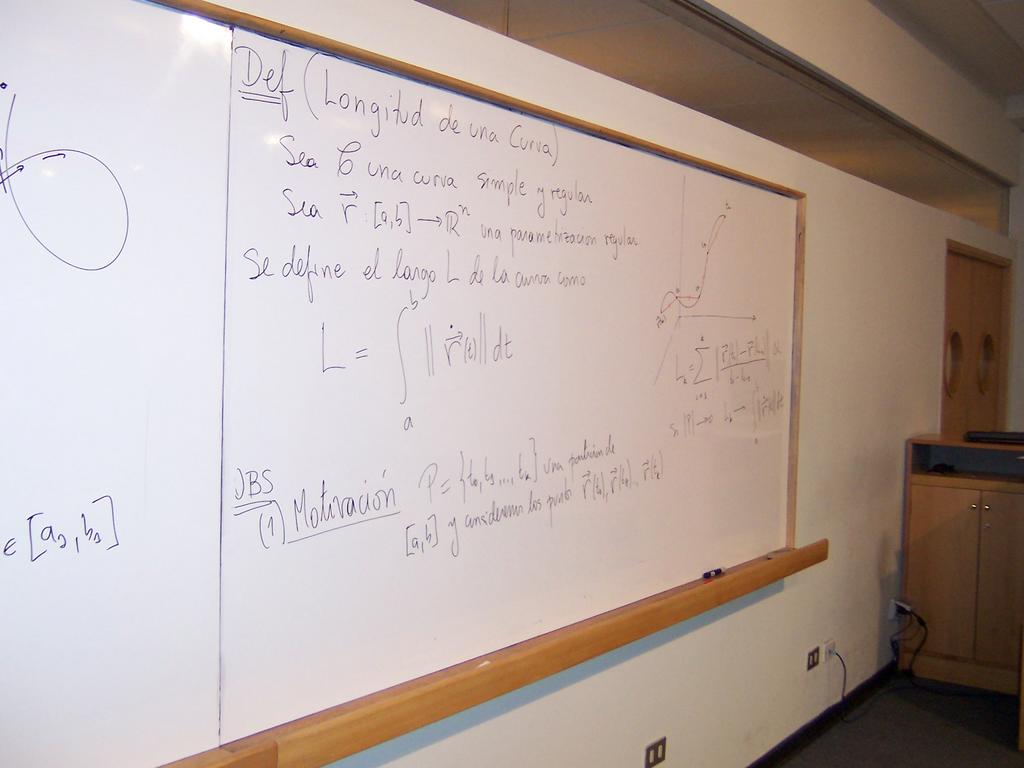 ∈ [a₁, b₁]
Def (Longitud de una Curva)
Sea C una curva simple y regular
Sea r⃗ : [a,b] → ℝⁿ una parametrizacion regular
Se define el largo L de la curva como
L = ∫ₐᵇ ‖ ṙ⃗(t) ‖ dt
OBS
(1) Motivación P = {t₀, t₁, ..., tₖ} una partición de
[a,b] y consideremos los puntos r⃗(t₀), r⃗(t₁)... r⃗(tₖ)